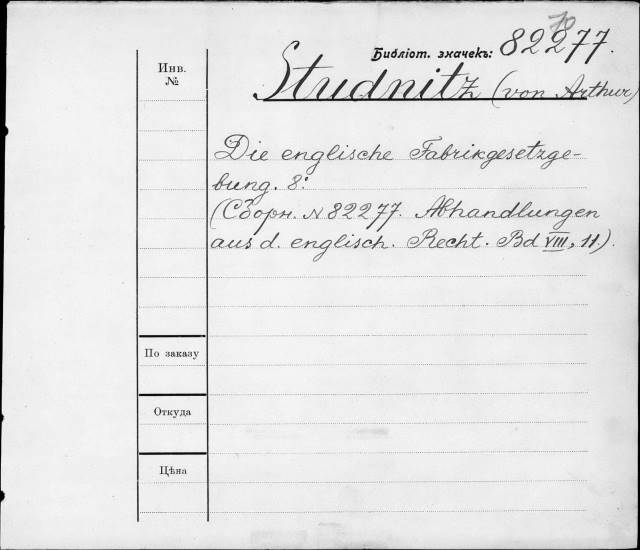 70
Библіот. значекъ: 82277.
Инв.
№
Studnitz (von Arthur)
Die englische Fabrikgesetzge-
bung. 8°.
(Сборн. № 82277. Abhandlungen
aus d. englisch. Recht. Bd VIII, 11.)
По заказу
Откуда
Цѣна